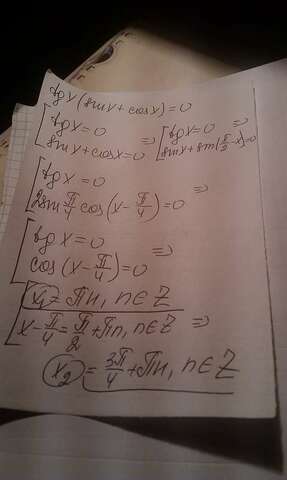 tg x (sin x + cos x) = 0
[ tg x = 0 ⇒ [ tg x = 0 ⇒
sin x + cos x = 0 sin x + sin(π/2 - x) = 0
[ tg x = 0
2 sin π/4 cos (x - π/4) = 0 ⇒
[ tg x = 0
cos (x - π/4) = 0 ⇒
[ x₁ = πn, n ∈ Z
x - π/4 = π/2 + πn, n ∈ Z ⇒
x₂ = 3π/4 + πn, n ∈ Z